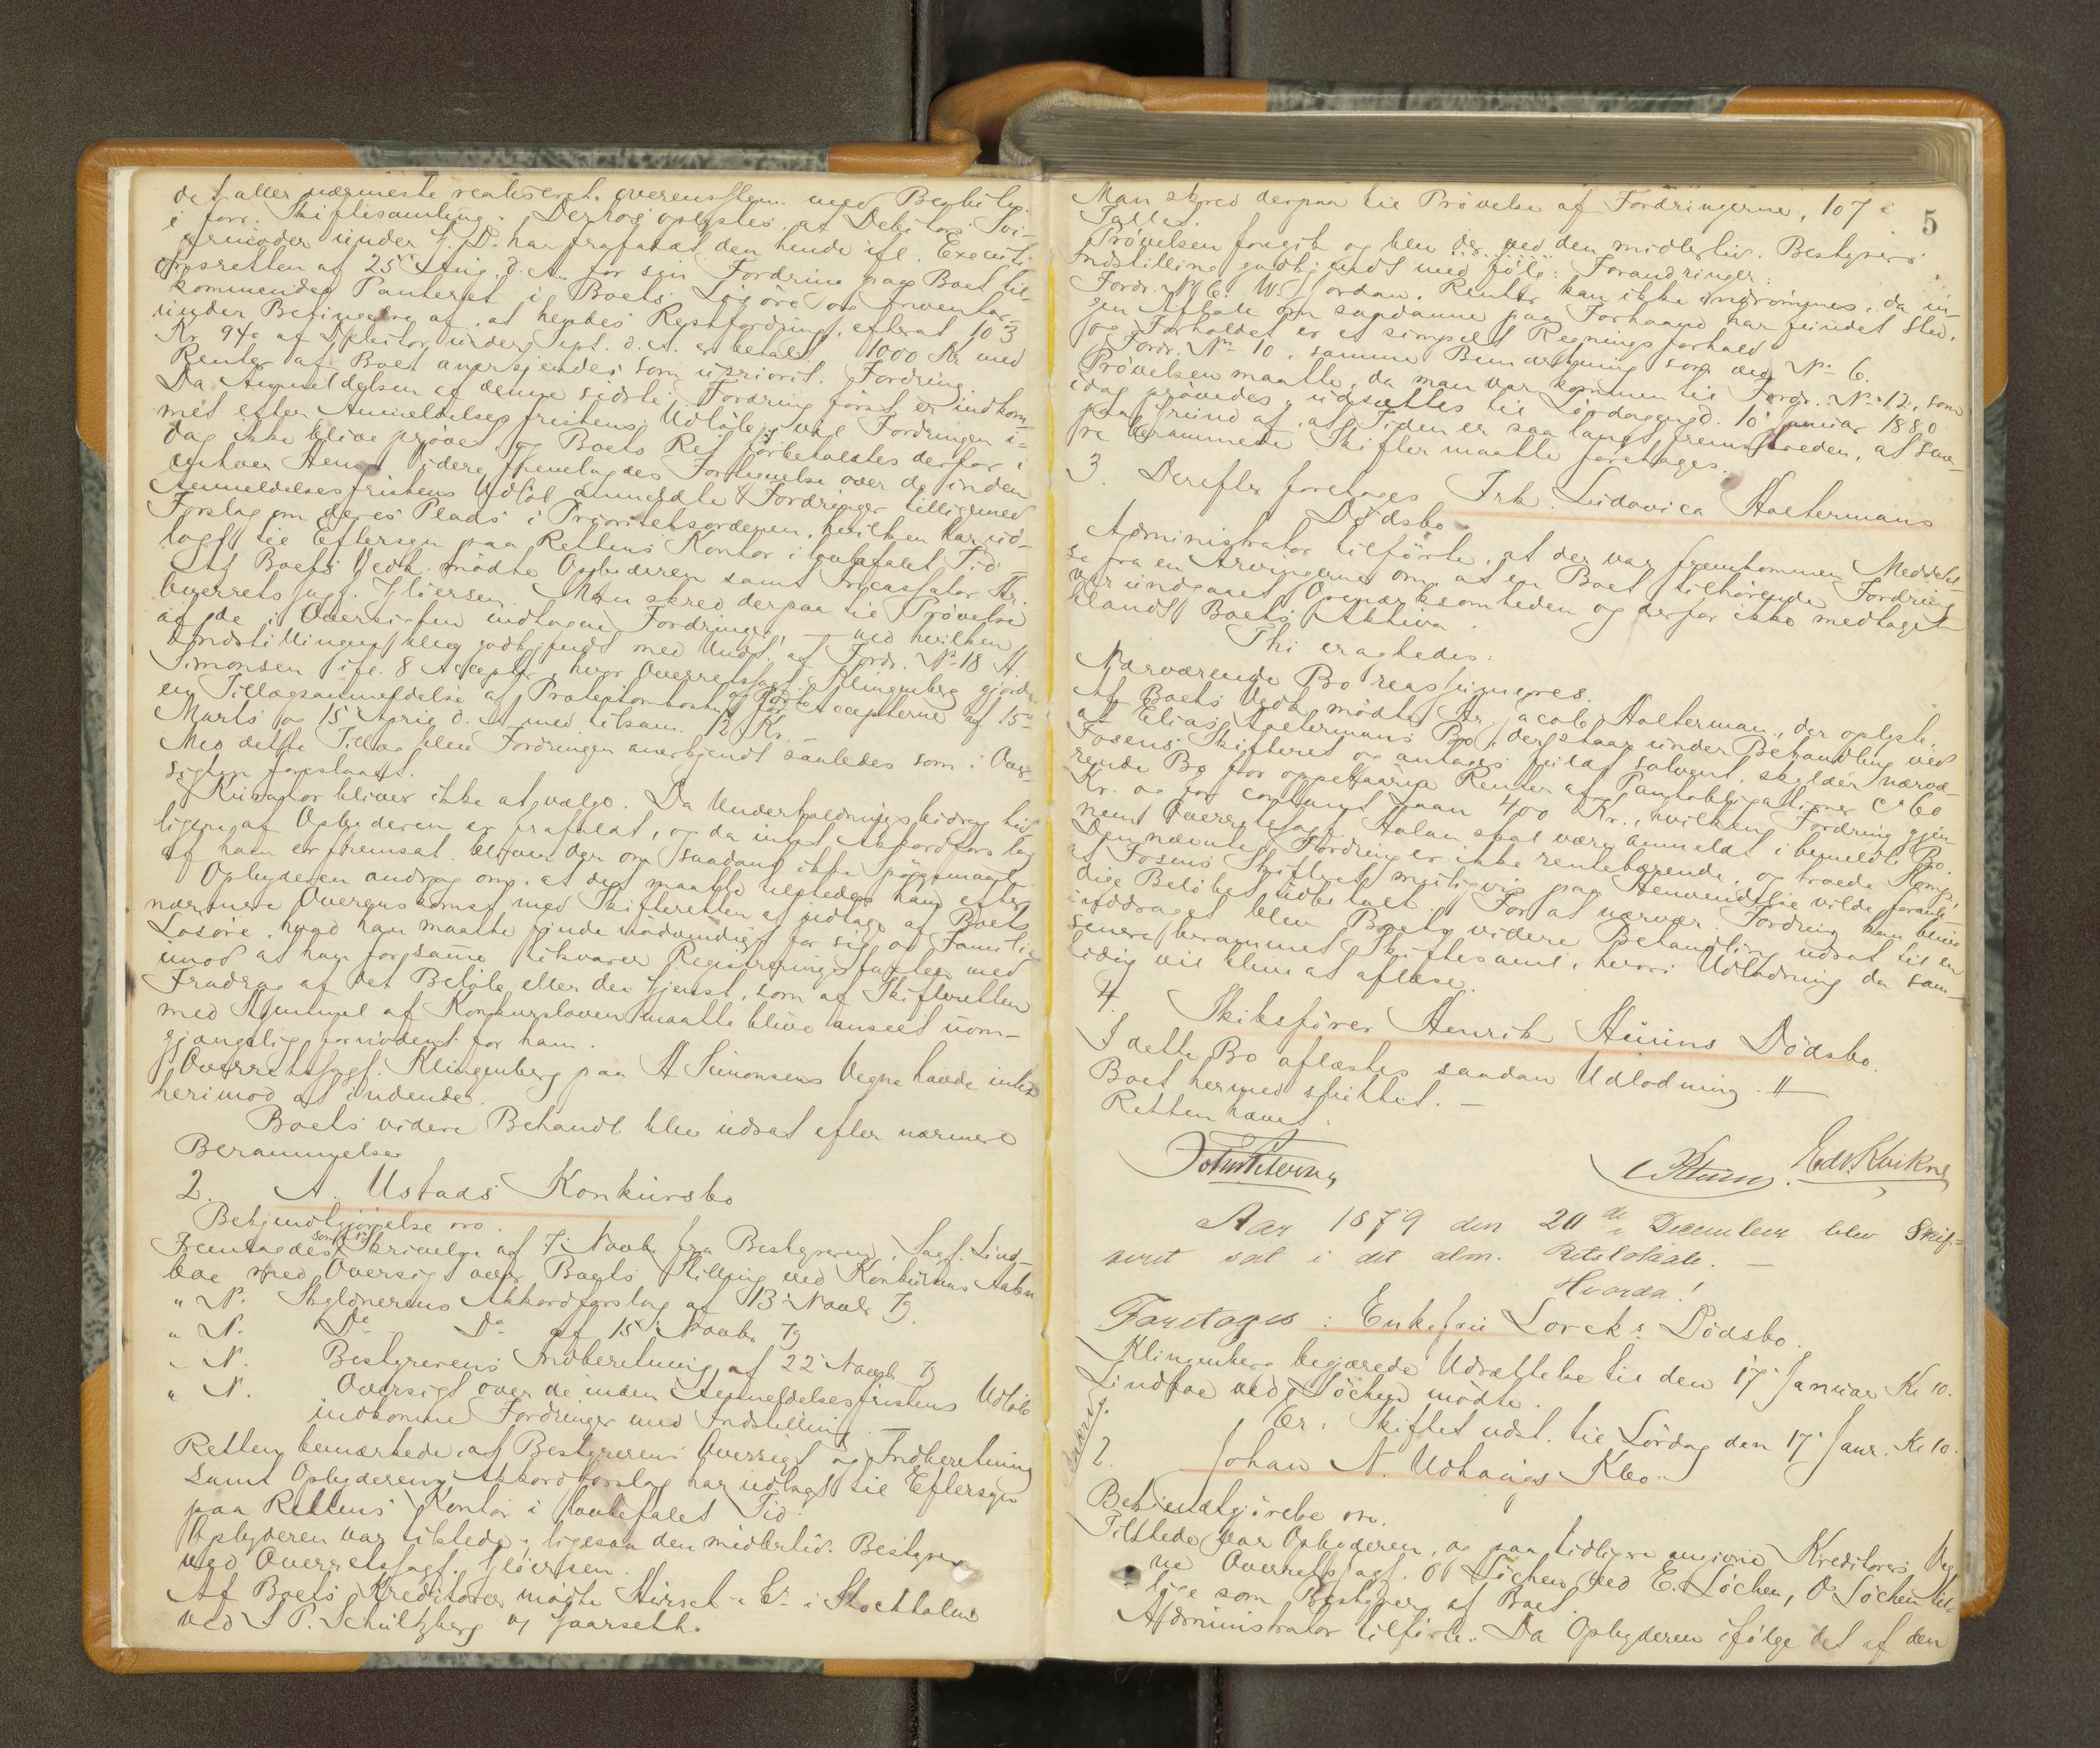 det aller nærmeste realiseret overensstem. med Beslutn.
i forr. Skiftesamling. Derhos oplystes, at Debitors Svi-
germoder under S. D. har frafaldt den hende ifl. Executi-
onsretten af 25 Aug. d. A. for sin Fordring paa Boet til-
kommende Panteret i Boets Løsöre og Inventar
under Betingelse af, at hendes Restfordring, efterat 103
Kr. 94 ø af Debitor under Sept. d. A. er betalt, 1000 Kr. med
Renter af Boet anerkjendes som upriorit. Fordring.
Da Anmeldelsen af denne sidste Fordring först er indkom-
met efter Anmeldelsesfristens Udlöb, vil Fordringen i-
dag ikke blive prövet og Boets Ret forbeholdtes derfor i
enhver Hens. videre fremlagdes Fortegnelse over de inden
Anmeldelsesfristens Udlöb anmeldte Fordringer tilligemed
Forslag om deres Plads i Prioritetsordenen, hvilken har ud-
lagt til Eftersyn paa Rettens Kontor i lovbefalet Tid.
Af Boets Vedk. mødte Opbyderen samt Incassator Hr.
Overretssagf. Hlöersen. Man skred derpaa til Prövelse
af de i Oversigten indtagne Fordringer, ved hvilken
Indstillingen blev godkjendt med Undt. af Fordr. No 18 A
Simonsen ifl. 8 Accepter, hvor Overretssagf. Klingenberg gjorde
en Tillægsanmeldelse af Protestomkostn. for Accepterne af 15
Marts og 15 April d. A. med tilsam. 12 Kr. –
Med dette Tillæg blev Fordringen anerkjendt saaledes som i Over-
sigten foreslaaet.
Kurator bliver ikke at vælge. Da Underholdningsbidrag tid-
ligere af Opbyderen er frafaldt, og da intet Akkordforslag
af ham er fremsat, bliver der om saadant ikke Spørgsmaal
Opbyderen androg om, at det maatte tilstedes ham efter
nærmere Overenskomst med Skifteretten at udtage af Boets
Løsöre, hvad han maatte finde nödvendigt for sig og Familie
imod at han for samme tilsvarer Registreringstaxten med
Fradrag af det Belöb eller den Gjenst. som af Skifteretten
med Hjemmel af Konkursloven maatte blive anseet uom-
gjængelig fornödent for ham.
Overretssagf. Klingenberg paa A Simonsens Vegne havde intet
herimod at indvende.
Boets videre Behandl. blev udsat efter nærmere
Berammelse
2. A. Ustads Konkursbo
Bekjendtgjörelse oro.
Fremlagdes som N. Skrivelse af 7 Novbr. fra Bestyreren, Sagf. Lind-
boe med Oversigt over Boets Stilling ved Konkursens Aabn.
" N. Skyldnerens Akkordforslag af 13 Novbr. 79.
" N. Do Do af 15 Novbr. 79
" N. Bestyrerens Indberetning af 22 Novbr. 79
" N. Oversigt over de inden Anmeldelsesfristens Udlöb
indkomne Fordringer med Indstilling. –
Retten bemærkede, at Bestyrerens Oversigt og Indberetning
samt Opbyderens Akkordforslag har udlagt til Eftersyn
paa Rettens Kontor i lovbefalet Tid.
Opbyderen var tilstede, ligesaa den midlertid. Bestyrer
ved Overretssagf. Hlöersen.
Af Boets Kreditorer mødte Hirsch & Co i Stockholm
ved S P. Schultzberg og Gaarseth.
5
Man skred derpaa til Prövelse af Fordringerne, 107 i
Tallet.
Prövelsen foregik og blev der ved den midlertid. Bestyrers
Indstilling godkjendt med fölg. Forandringer:
Fordr. No 6. W. Jordan. Renter kan ikke indrömmes, da in-
gen Aftale om saadanne paa Forhaand har fundet Sted,
og Forholdet er et simpelt Regningsforhold
Fordr. No 10, samme Bemærkning som ved No 6.
Prövelsen maatte, da man var kommen til Fordr. No 12, som
idag prövedes, udsættes til Lördagen d. 10 Januar 1880
paa Grund af, at Tiden er saa langt fremskreden, at sene-
re berammede Skifter maatte foretages.
3. Derefter foretages Frk. Ludovica Holtermans
Dödsbo
Administrator tilförte, at der var fremkommen Meddelel-
se fra en Arvingerne om, at en Boet tilhörende Fordring
var undgaaet Opmærksomheden og derfor ikke medtaget
blandt Boets Aktiva.
Thi eragtedes:
Nærværende Bo reassumeres.
Af Boets Vedk. mødte Hr. Jacob Holterman, der oplyste,
at Elias Holtermans Bo, der staar under Behandling ved
Fosens Skifteret og antages fuldt solvent, skylder nærvæ-
rende Bo for oppebaarne Renter af Pantobligationer Ca 60
Kr. og for contant Laan 400 Kr., hvilken Fordring gjen-
nem Overretssagf. Holan skal være anmeldt i bemeldte Bo.
Den nævnte Fordring er ikke rentebærende, og troede Komp.
at Fosens Skifteret muligvis paa Henvendelse vilde foranle-
dige Belöbet udbetalt. For at nærvær. Fordring kan blive
inddraget blev Boets videre Behandling udsat til en
senere berammet Skiftesaml., hvori Udlodning da sam-
tidig vil blive at aflæse.
4. Skibsfører Henrik Huuns Dödsbo.
I dette Bo aflæstes saadan Udlodning. #
Boet hermed sluttet. –
Retten hævet.
Edv. Kvikne
Aar 1879 den 20de December blev Skif-
teret sat i det alm. Retslokale. –
Hvorda!
Foretages: Enkefru Lorcks Dödsbo.
Klingenberg begjærede Udsættelse til den 17 Januar Kl 10.
Lindboe ved Löchen mødte.
Er: Skiftet uds. til Lördag den 17 Janr. Kl 10.
2. Johan N. Udhaugs Kbo.
Bekjendtgjörelse oro.
Tilstede var Opbyderen, og paa tidligere angivne Kreditorers Veg-
ne Overretssagf. O Löchen ved E. Löchen, O Löchen til-
lige som Bestyrer af Boet.
Administrator tilförte: Da Opbyderen ifölge det af den